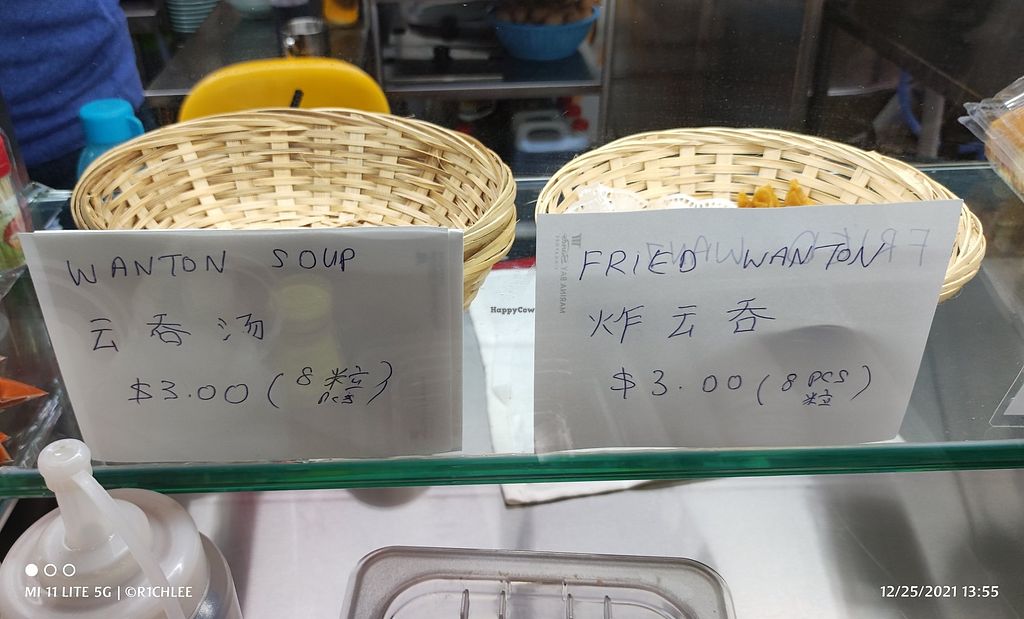 WANTON SOUP
云吞汤
$3.00 (8粒 pcs)
FRIED WANTON
炸云吞
$3.00 (8 pcs 粒)
HappyCow
MARINA BAY Sands
MI 11 LITE 5G | ©R1CHLEE
12/25/2021 13:55